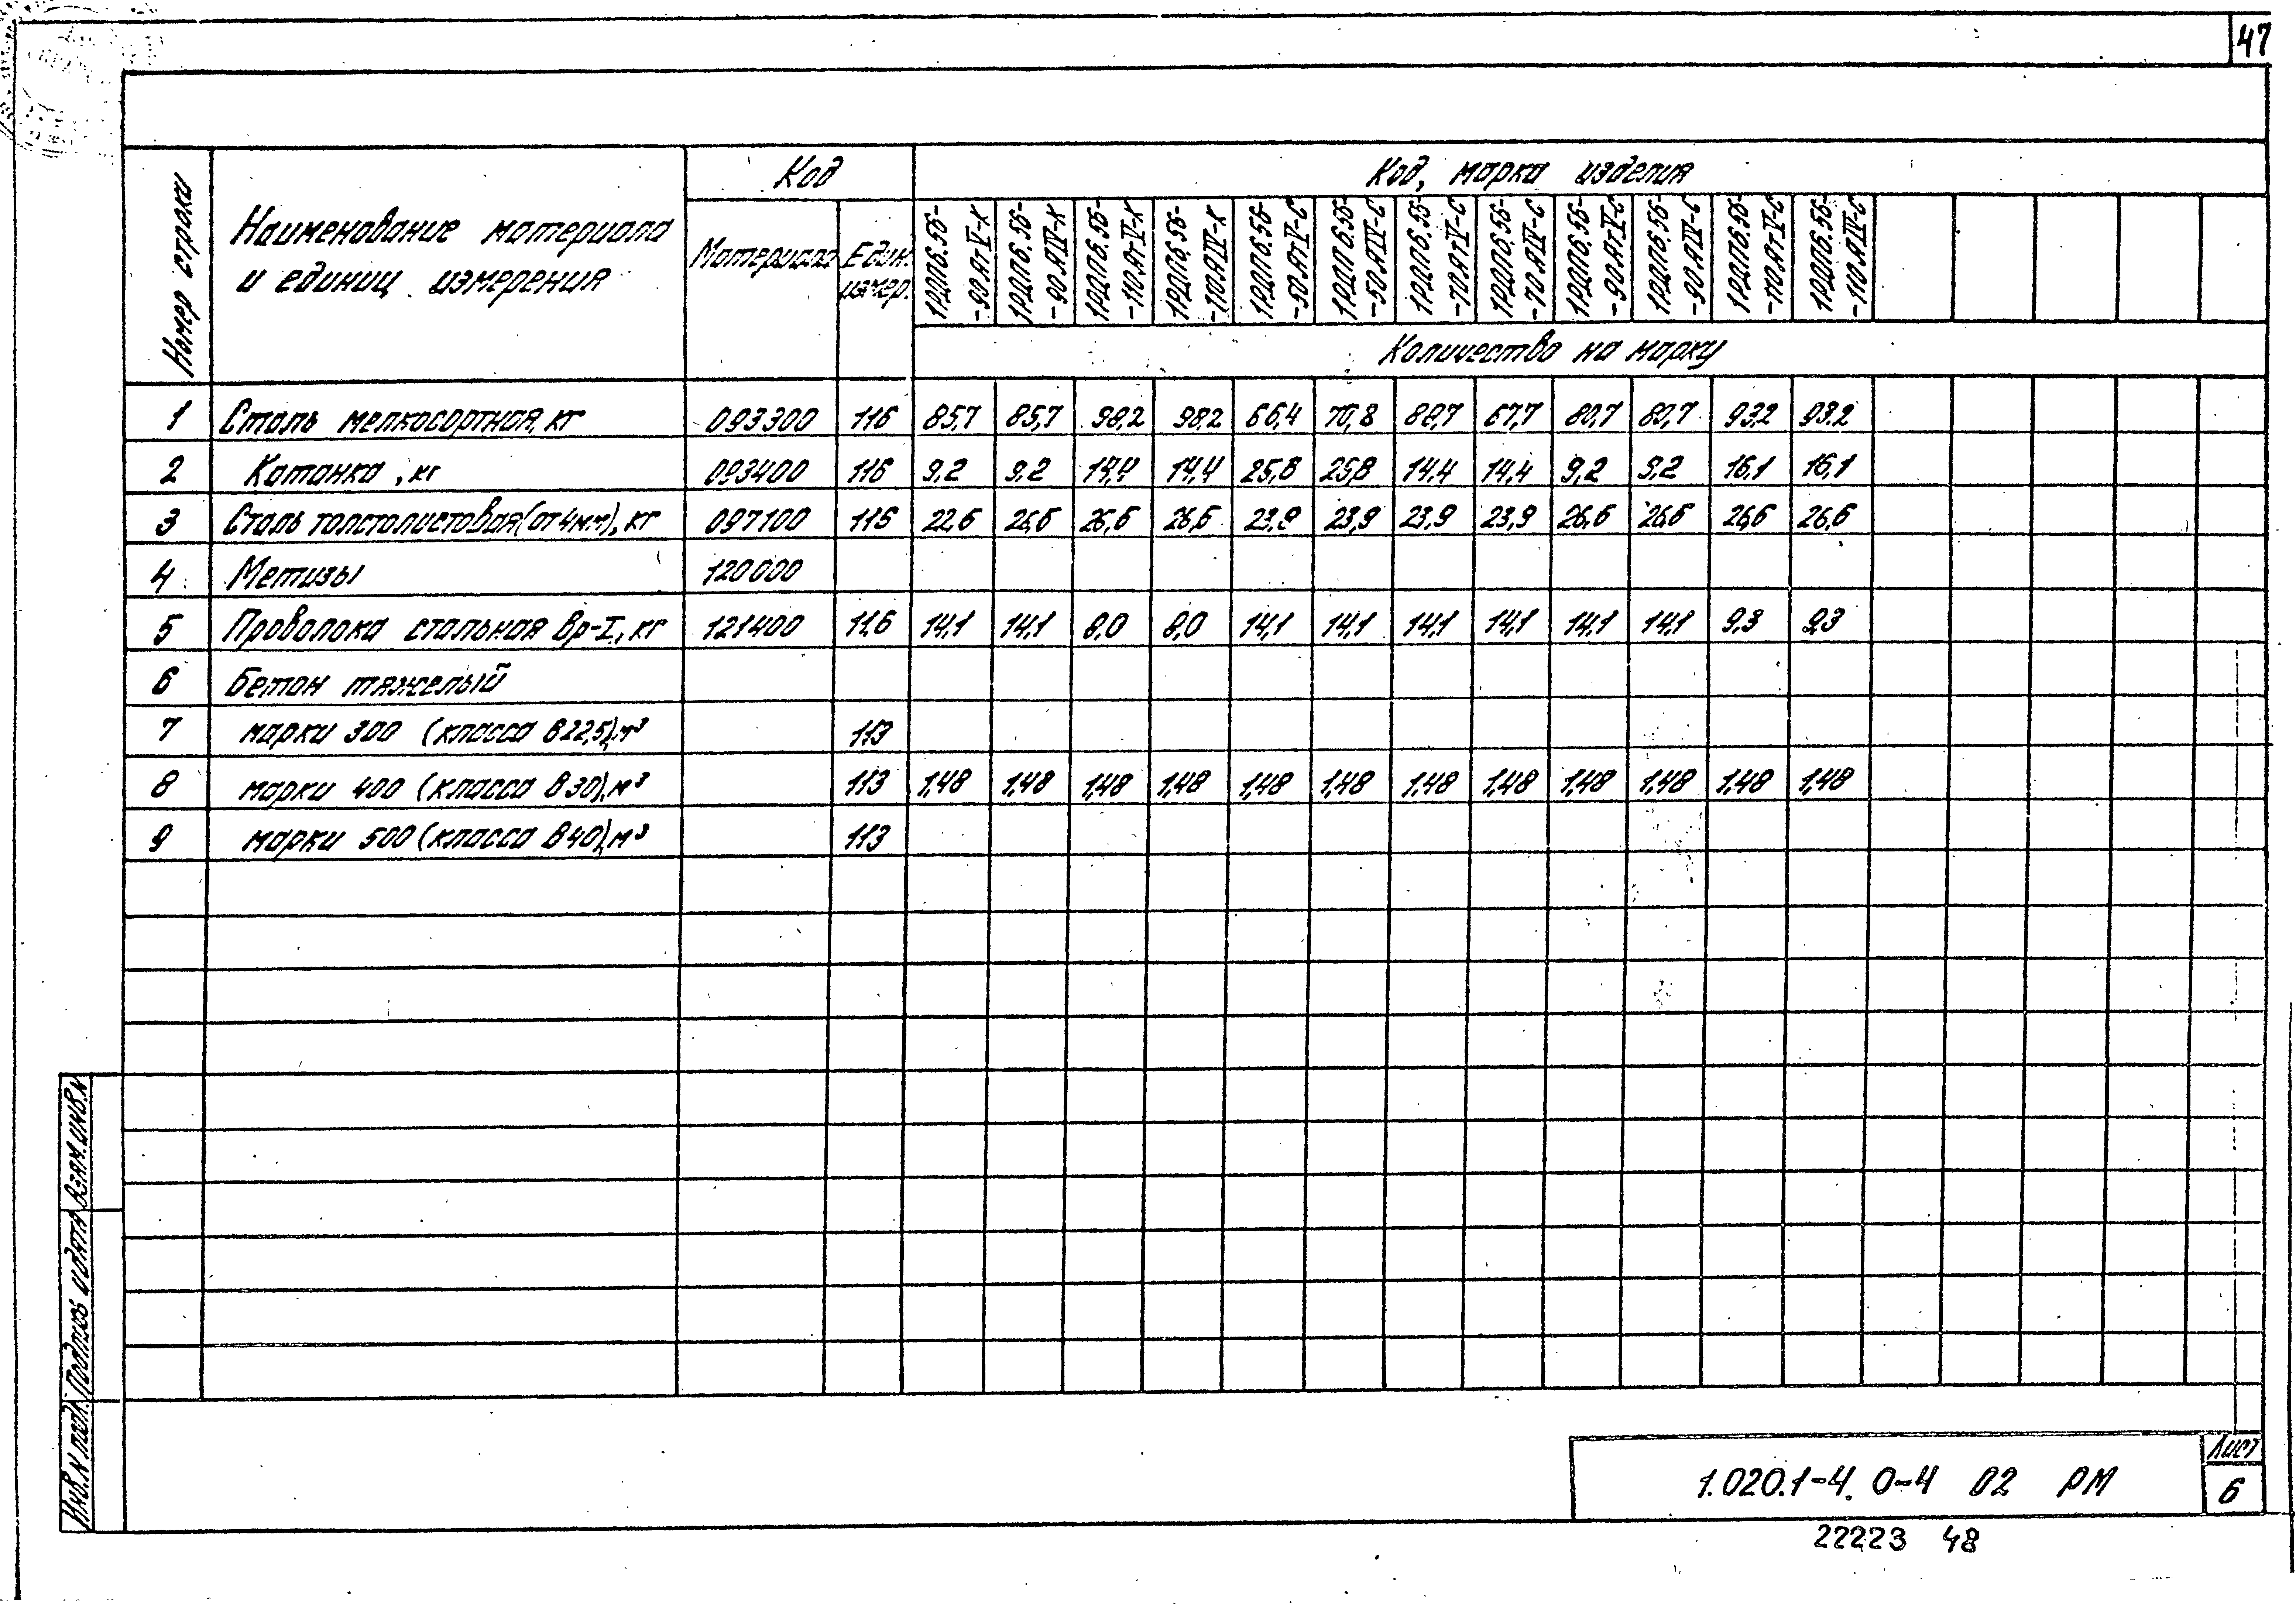 47
Номер строки
Наименование материала
и единиц измерения
Код
Материала
Един. измер.
Код, марка изделия
1РДП6.56- -90АтV-К
1РДП6.56- -90АIV-К
1РДП6.56- -110АтV-К
1РДП6.56- -110АIV-К
1РДП6.56- -50АтV-С
1РДП6.56- -50АIV-С
1РДП6.56- -70АтV-С
1РДП6.56- -70АIV-С
1РДП6.56- -90АтV-С
1РДП6.56- -90АIV-С
1РДП6.56- -110АтV-С
1РДП6.56- -110АIV-С
Количество на марку
1 Сталь мелкосортная, кг 093300 116 85,7 85,7 98,2 98,2 66,4 70,8 67,7 80,7 80,7 93,2 93,2
2 Катанка, кг 093400 116 9,2 9,2 14,4 14,4 25,8 25,8 14,4 14,4 9,2 9,2 16,1 16,1
3 Сталь толстолистовая (от 4мм), кг 097100 116 22,6 26,6 26,6 26,6 23,9 23,9 23,9 23,9 26,6 26,6 26,6 26,6
4 Метизы 120000
5 Проволока стальная Вр-I, кг 121400 116 14,1 14,1 8,0 8,0 14,1 14,1 14,1 14,1 14,1 14,1 9,3 9,3
6 Бетон тяжелый
7 марки 300 (класса В22,5), м³ 113
8 марки 400 (класса В30), м³ 113 1,48 1,48 1,48 1,48 1,48 1,48 1,48 1,48 1,48 1,48 1,48 1,48
9 марки 500 (класса В40), м³ 113
Взам. инв. N
Подпись и дата
Инв. N подл.
1.020.1-4. 0-4 02 РМ
Лист
6
22223 48